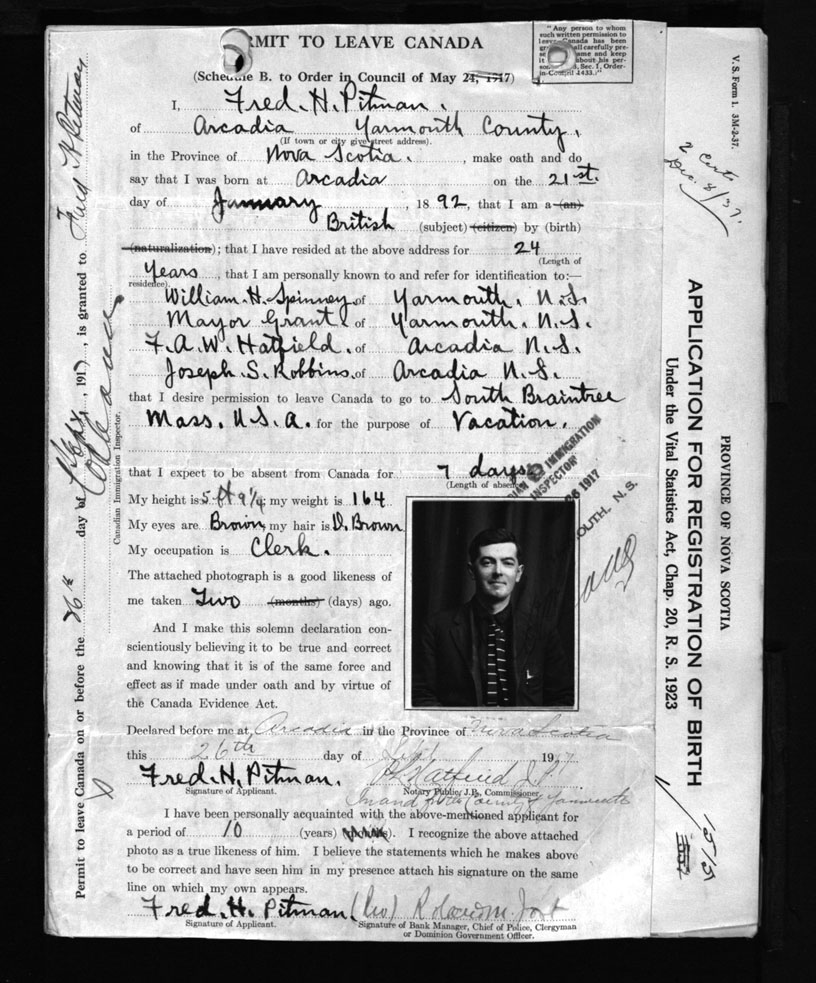 "Any person to whom
such written permission to
leave Canada has been
all carefully pre-
same and keep
about his per-
Sec. 1, Order-
in-Council 1433."
RMIT TO LEAVE CANADA
(Schedule B. to Order in Council of May 24, 1917)
I, Fred. H. Pitman.
of Arcadia Yarmouth County.
(If town or city give street address).
in the Province of Nova Scotia. , make oath and do
say that I was born at Arcadia on the 21st.
day of January , 1892, that I am a (an)
British (subject) (citizen) by (birth)
(naturalization); that I have resided at the above address for 24
(Length of
Years , that I am personally known to and refer for identification to:—
residence).
William. H. Spinney. of Yarmouth. N.S.
Mayor Grant. of Yarmouth. N.S.
F. A. W. Hatfield. of Arcadia N.S.
Joseph. S. Robbins. of Arcadia N.S.
that I desire permission to leave Canada to go to South Braintree
Mass. U.S.A. for the purpose of Vacation.
that I expect to be absent from Canada for 7 days
(Length of absence
My height is 5 ft 9 1/4; my weight is 164
My eyes are Brown, my hair is D. Brown
My occupation is Clerk.
The attached photograph is a good likeness of
me taken Two (months) (days) ago.
And I make this solemn declaration con-
scientiously believing it to be true and correct
and knowing that it is of the same force and
effect as if made under oath and by virtue of
the Canada Evidence Act.
IMMIGRATION
INSPECTOR
26 1917
OUTH, N.S.
Declared before me at Arcadia in the Province of Nova Scotia
this 26th day of Sept 1917
Fred. H. Pitman. Hatfield J.P.
Signature of Applicant. Notary Public, J.P., Commissioner.
In and for the County of Yarmouth
I have been personally acquainted with the above-mentioned applicant for
a period of 10 (years) (months). I recognize the above attached
photo as a true likeness of him. I believe the statements which he makes above
to be correct and have seen him in my presence attach his signature on the same
line on which my own appears.
Fred. H. Pitman (Rev)
Signature of Applicant. Signature of Bank Manager, Chief of Police, Clergyman
or Dominion Government Officer.
Permit to leave Canada on or before the 26th day of Sept, 1917, is granted to Fred H Pitman
Canadian Immigration Inspector.
V. S. Form 1. 3M-2-37.
2 Certs
Dec. 8/37.
PROVINCE OF NOVA SCOTIA
APPLICATION FOR REGISTRATION OF BIRTH
Under the Vital Statistics Act, Chap. 20, R. S. 1923